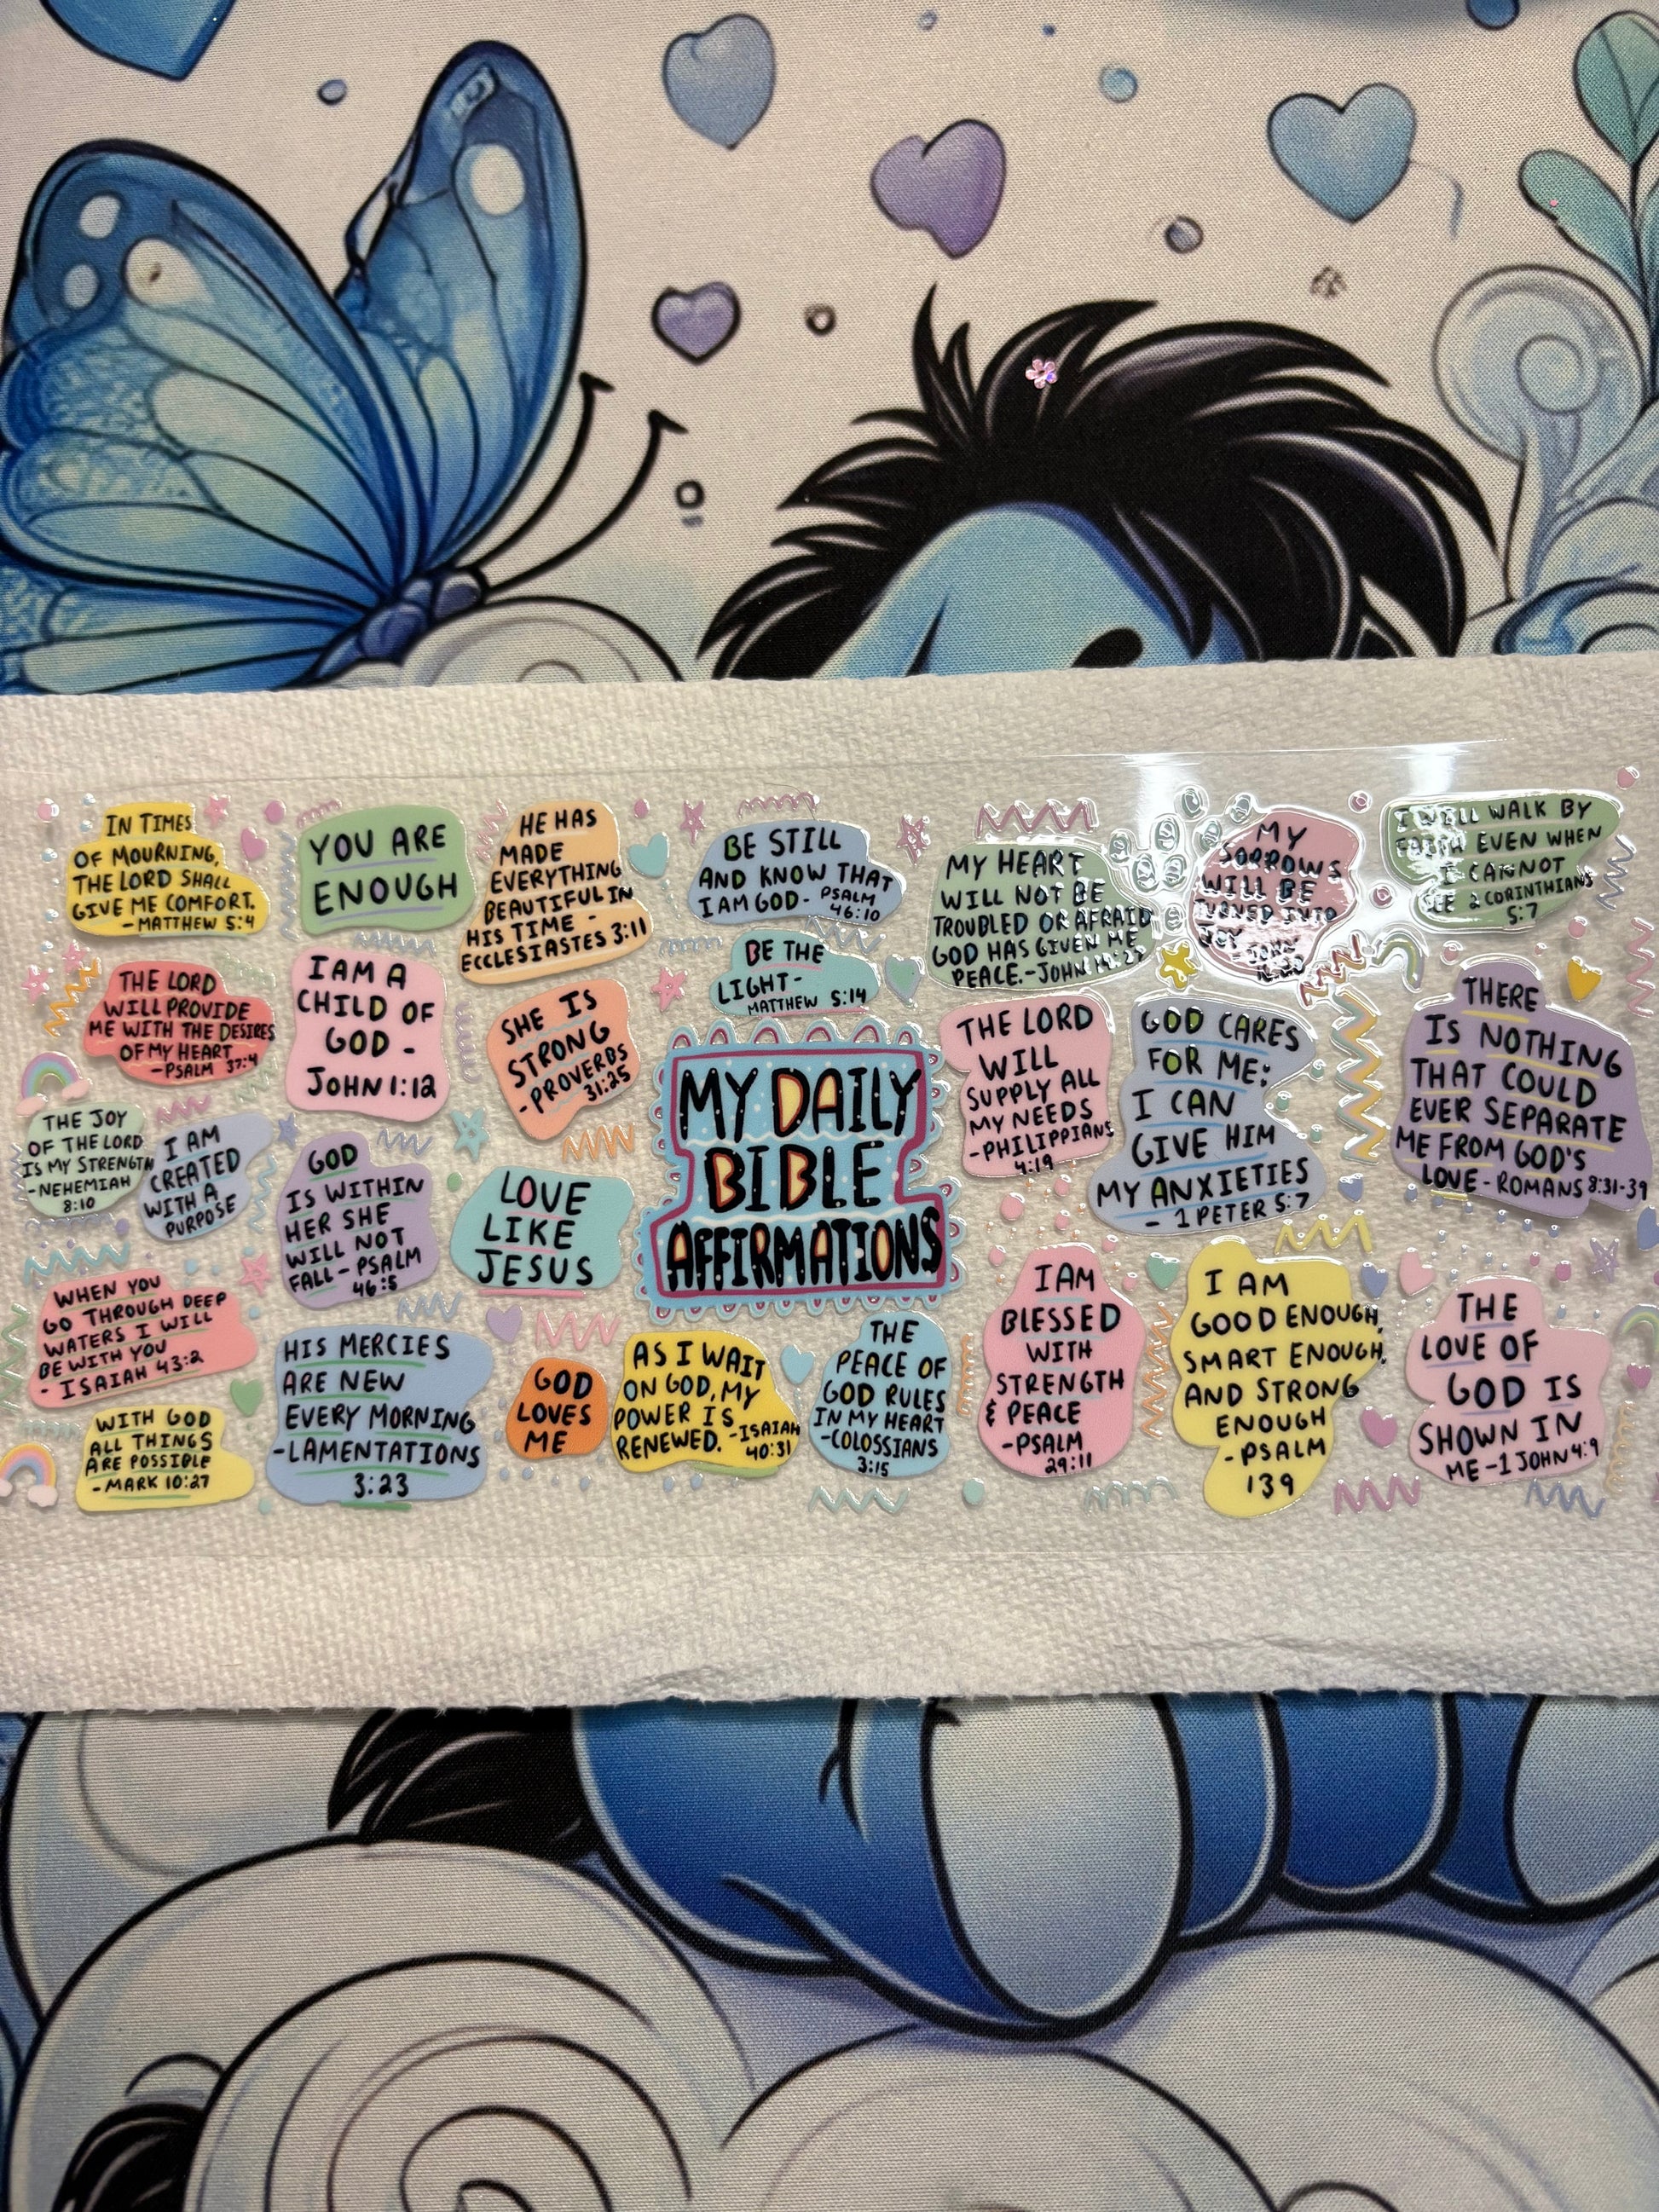 IN TIMES
OF MOURNING,
THE LORD SHALL
GIVE ME COMFORT.
- MATTHEW 5:4
THE LORD
WILL PROVIDE
ME WITH THE DESIRES
OF MY HEART
- PSALM 37:4
THE JOY
OF THE LORD
IS MY STRENGTH
- NEHEMIAH
8:10
I AM
CREATED
WITH A
PURPOSE
WHEN YOU
GO THROUGH DEEP
WATERS I WILL
BE WITH YOU
- ISAIAH 43:2
WITH GOD
ALL THINGS
ARE POSSIBLE
- MARK 10:27
YOU ARE
ENOUGH
I AM A
CHILD OF
GOD -
JOHN 1:12
GOD
IS WITHIN
HER SHE
WILL NOT
FALL - PSALM
46:5
HIS MERCIES
ARE NEW
EVERY MORNING
- LAMENTATIONS
3:23
HE HAS
MADE
EVERYTHING
BEAUTIFUL IN
HIS TIME -
ECCLESIASTES 3:11
SHE IS
STRONG
- PROVERBS
31:25
LOVE
LIKE
JESUS
GOD
LOVES
ME
BE STILL
AND KNOW THAT
I AM GOD - PSALM
46:10
BE THE
LIGHT -
MATTHEW 5:14
MY DAILY
BIBLE
AFFIRMATIONS
AS I WAIT
ON GOD, MY
POWER IS
RENEWED. - ISAIAH
40:31
THE
PEACE OF
GOD RULES
IN MY HEART
- COLOSSIANS
3:15
MY HEART
WILL NOT BE
TROUBLED OR AFRAID
GOD HAS GIVEN ME
PEACE. - JOHN 14:27
THE LORD
WILL
SUPPLY ALL
MY NEEDS
- PHILIPPIANS
4:19
I AM
BLESSED
WITH
STRENGTH
& PEACE
- PSALM
29:11
MY
SORROWS
WILL BE
TURNED INTO
JOY - JOHN
GOD CARES
FOR ME:
I CAN
GIVE HIM
MY ANXIETIES
- 1 PETER 5:7
I AM
GOOD ENOUGH,
SMART ENOUGH,
AND STRONG
ENOUGH
- PSALM
139
I WILL WALK BY
FAITH EVEN WHEN
I CANNOT
SEE 2 CORINTHIANS
5:7
THERE
IS NOTHING
THAT COULD
EVER SEPARATE
ME FROM GOD'S
LOVE - ROMANS 8:31-39
THE
LOVE OF
GOD IS
SHOWN IN
ME - 1 JOHN 4:9